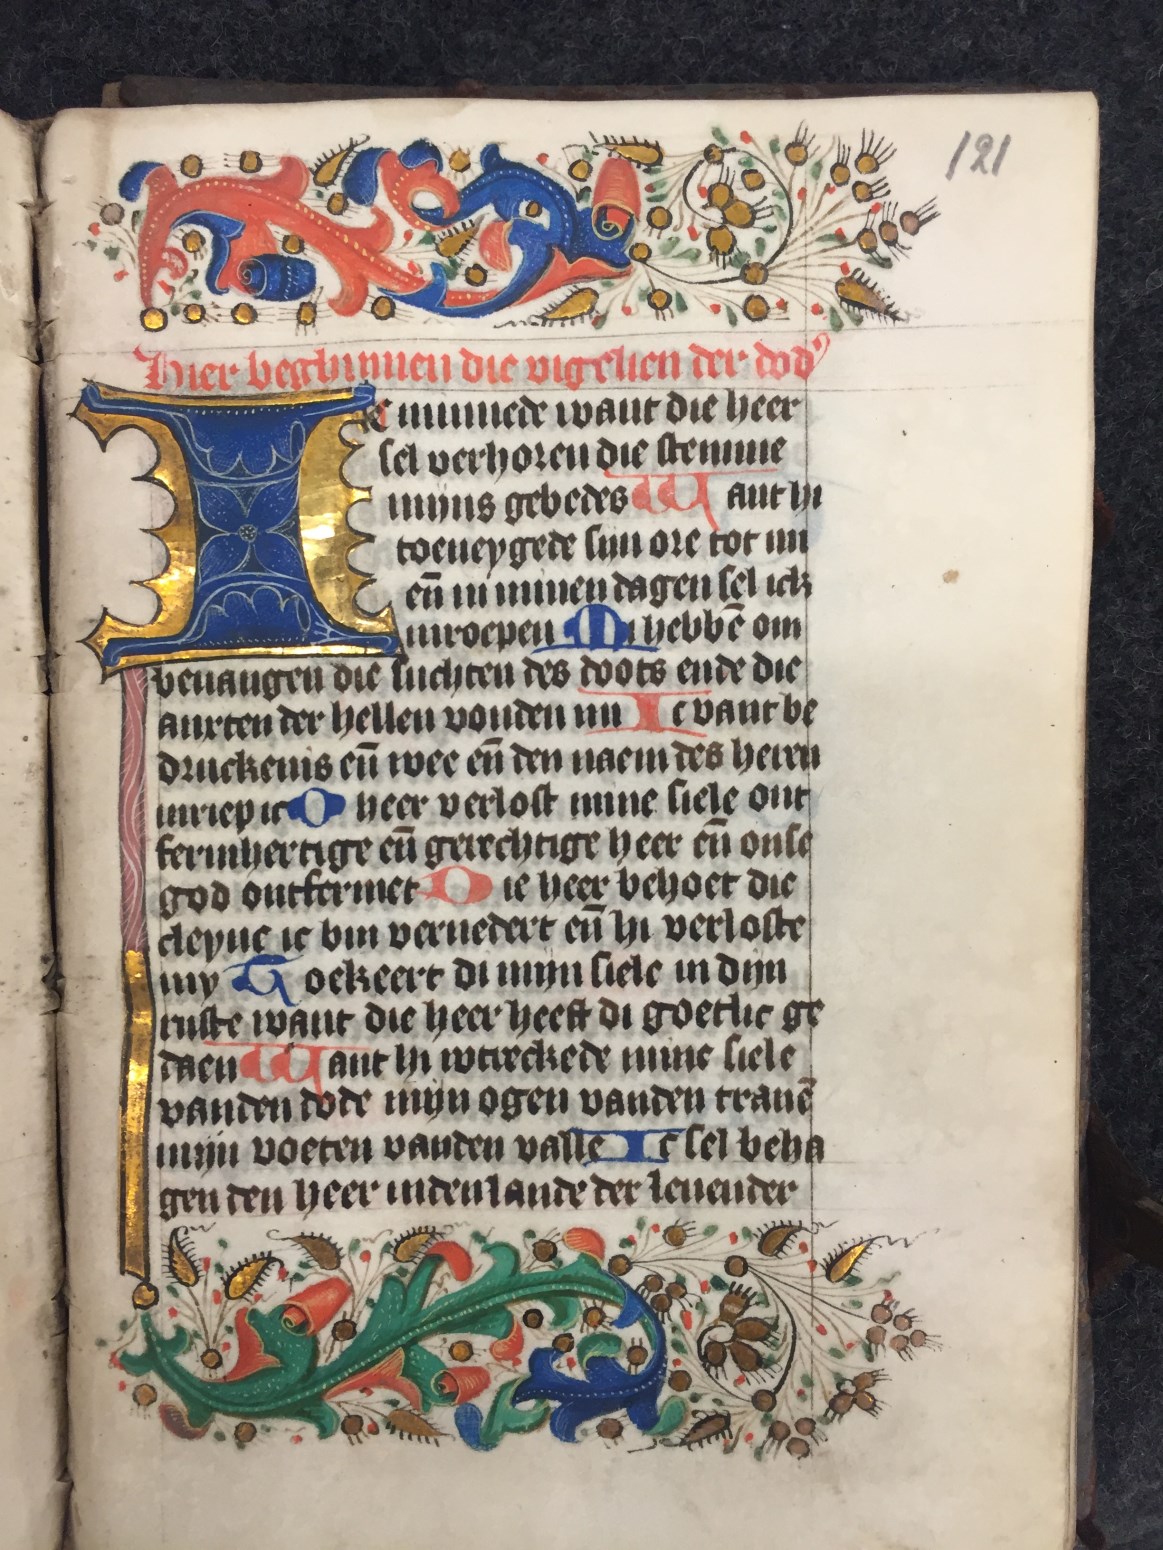 121
Hier beghinnen die vigelien der dod⁹
Ic minnede want die heer
sel verhoren die stemme
mijns gebedes Want hi
toeneygede sijn ore tot mi
eñ in minen dagen sel ick
inroepen Mi hebbē om
uenangen die suchten des doots ende die
anxten der hellen vonden mi Ic vant be
druckenis eñ wee eñ den naem des heren
inriep ic O heer verlost mine siele ont
fermhertige eñ gerechtige heer eñ onse
god ontfermet Die heer behoet die
cleyne ic bin vernedert eñ hi verloste
my Toekeert di mijn siele in dijn
ruste want die heer heeft di goetlic ge
daen Want hi wtreckede mine siele
vanden dode mijn ogen vanden tranē
mijn voeten vanden valle Ic sel beha
gen den heer inden lande der leuender